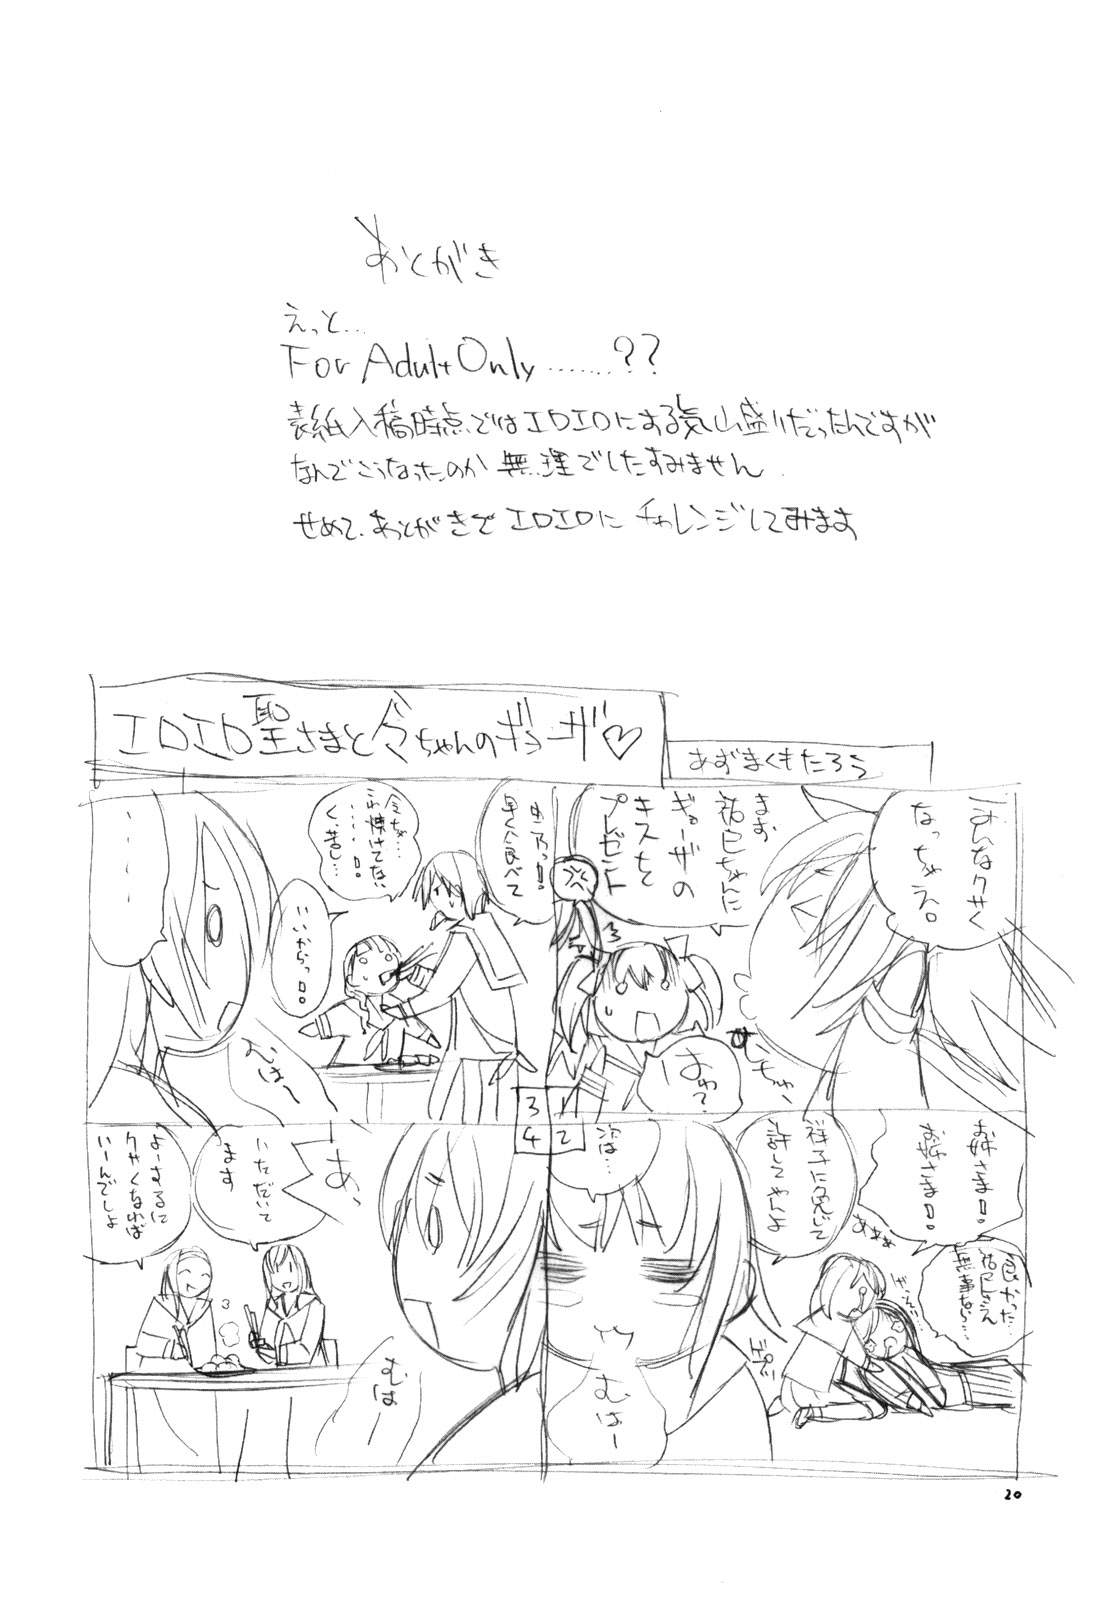 あとがき
えっと…
For Adult Only.......??
表紙入稿時点ではエロエロにする気山盛りだったんですが
なんでこうなったのか 無理でしたすみません
せめて、あとがきで エロエロに チャレンジしてみます
エロエロ聖さまと令ちゃんのギョーザ♡
あずまくもたろう
みんなクサく
なっちゃえ。
まず
祐巳ちゃんに
ギョーザの
キスを
プレゼント
はわ?
むちゅー
1
お姉さま!!
お姉さま!!
良かった…
祐巳さえ
無事なら…
祥子に免じて
許してやんよ
次は…
むはー
2
由乃っ!!
早く食べて
令ちゃ…
これ焼けてない
……!!
く、苦し…
いいからっ!!
……
むはー
3
あ、
いただいて
ます
よーするに
クサくなれば
いーんでしょ
むは
4
20